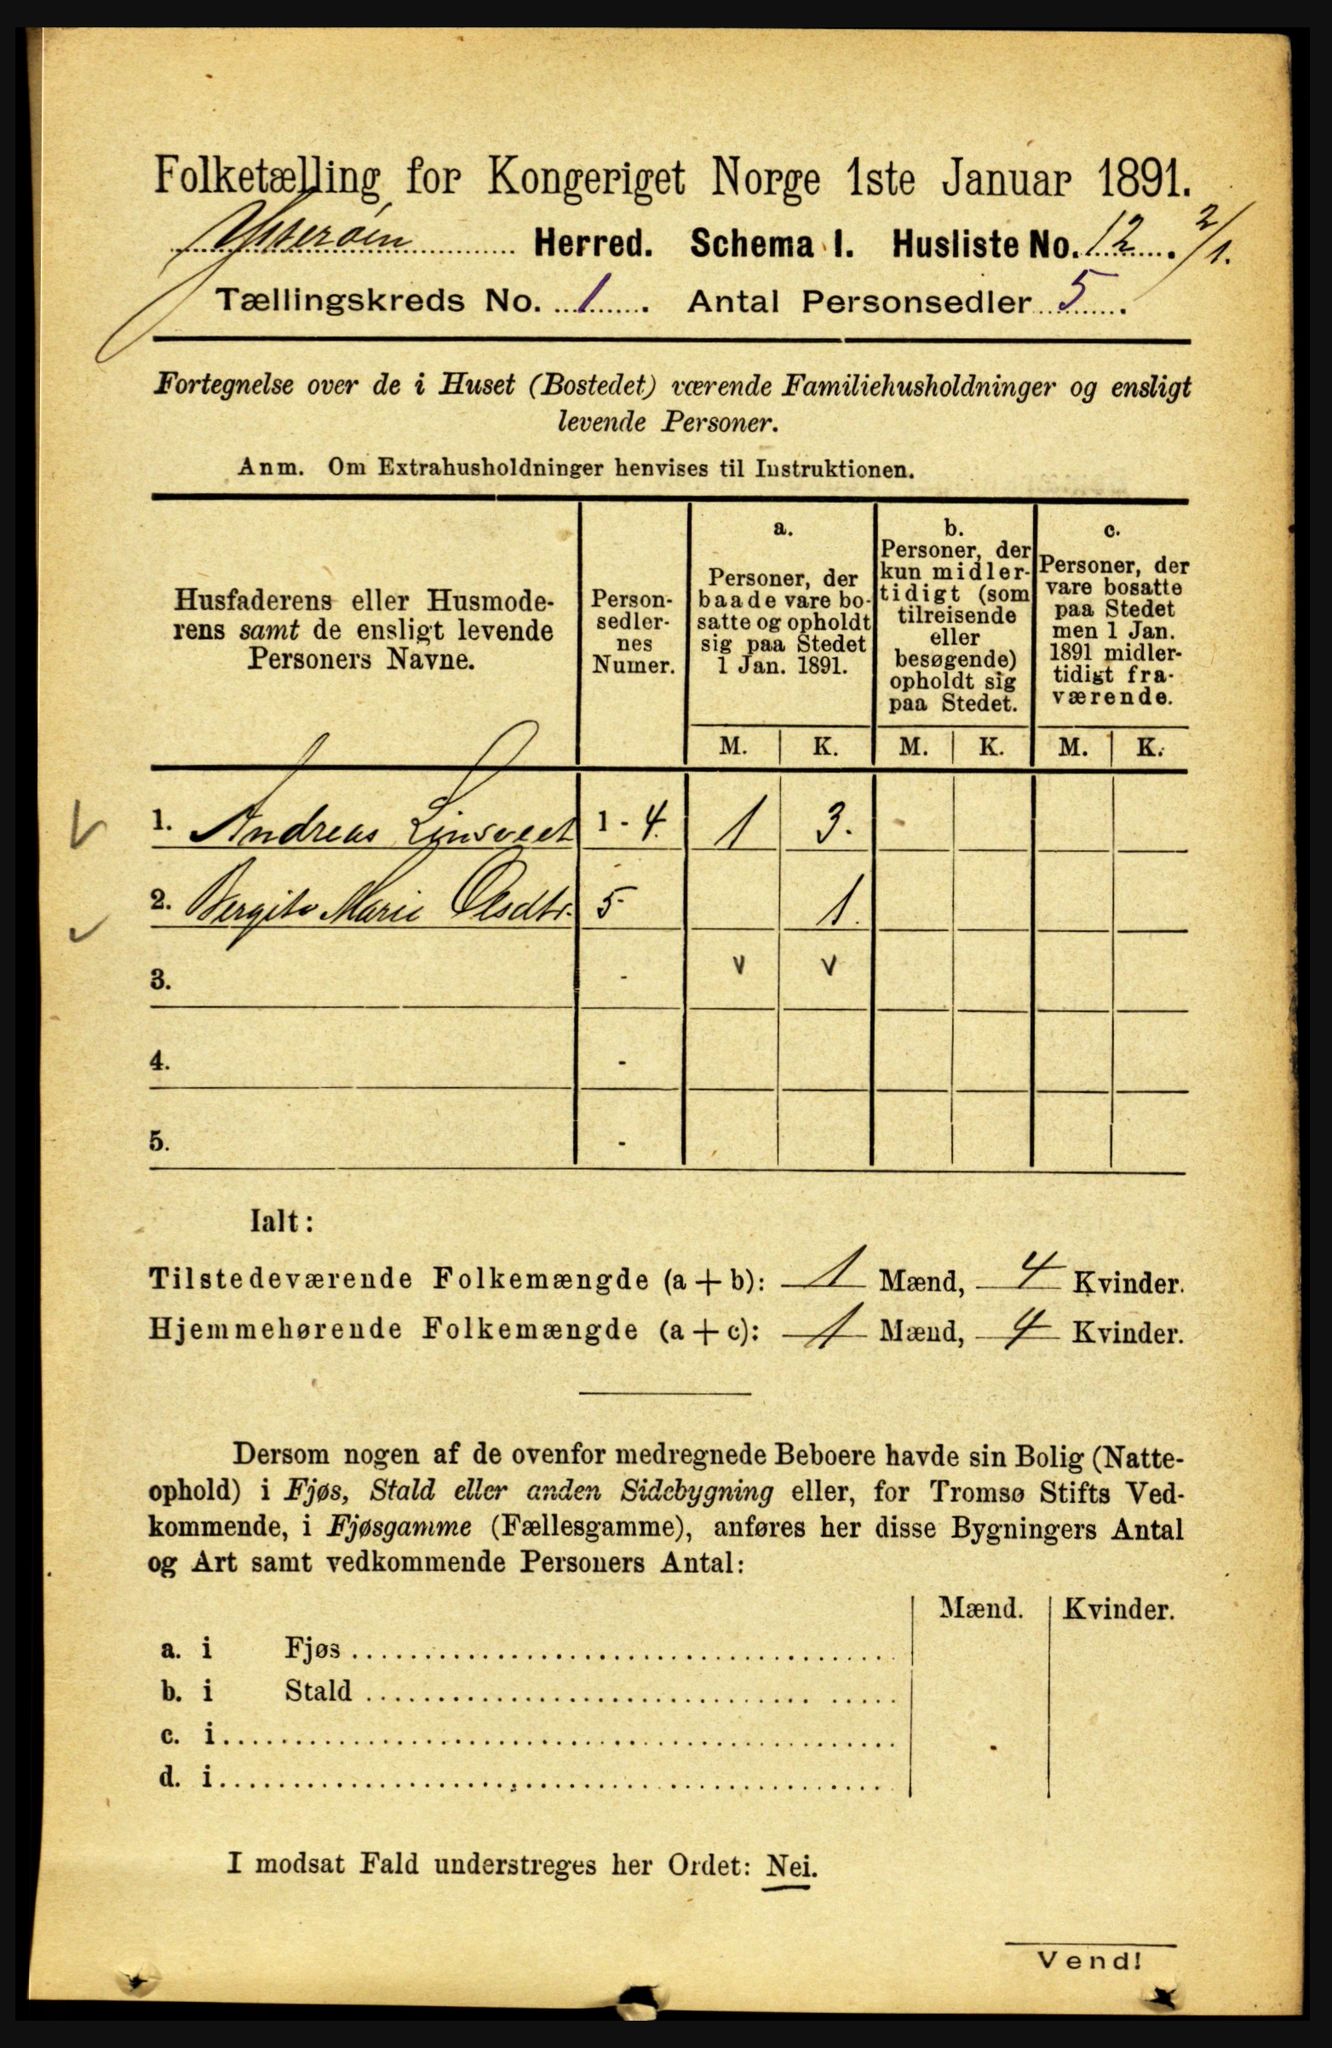 Folketælling for Kongeriget Norge 1ste Januar 1891.
Ytterøen Herred. Schema I. Husliste No. 12. 2/1.
Tællingskreds No. 1. Antal Personsedler 5.
Fortegnelse over de i Huset (Bostedet) værende Familiehusholdninger og ensligt
levende Personer.
Anm. Om Extrahusholdninger henvises til Instruktionen.
Husfaderens eller Husmode-
rens samt de ensligt levende
Personers Navne.
Person-
sedler-
nes
Numer.
a.
Personer, der
baade vare bo-
satte og opholdt
sig paa Stedet
1 Jan. 1891.
b.
Personer, der
kun midler-
tidigt (som
tilreisende
eller
besøgende)
opholdt sig
paa Stedet.
c.
Personer, der
vare bosatte
paa Stedet
men 1 Jan.
1891 midler-
tidigt fra-
værende.
M. K. M. K. M. K.
1. Andreas 1 - 4. 1 3.
2. Bergite Marie Olsdtr. 5 1.
3. - v v
4. -
5. -
Ialt:
Tilstedeværende Folkemængde (a + b): 1 Mænd, 4 Kvinder.
Hjemmehørende Folkemængde (a + c): 1 Mænd, 4 Kvinder.
Dersom nogen af de ovenfor medregnede Beboere havde sin Bolig (Natte-
ophold) i Fjøs, Stald eller anden Sidebygning eller, for Tromsø Stifts Ved-
kommende, i Fjøsgamme (Fællesgamme), anføres her disse Bygningers Antal
og Art samt vedkommende Personers Antal:
Mænd. Kvinder.
a. i Fjøs
b. i Stald
c. i
d. i
I modsat Fald understreges her Ordet: Nei.
Vend!